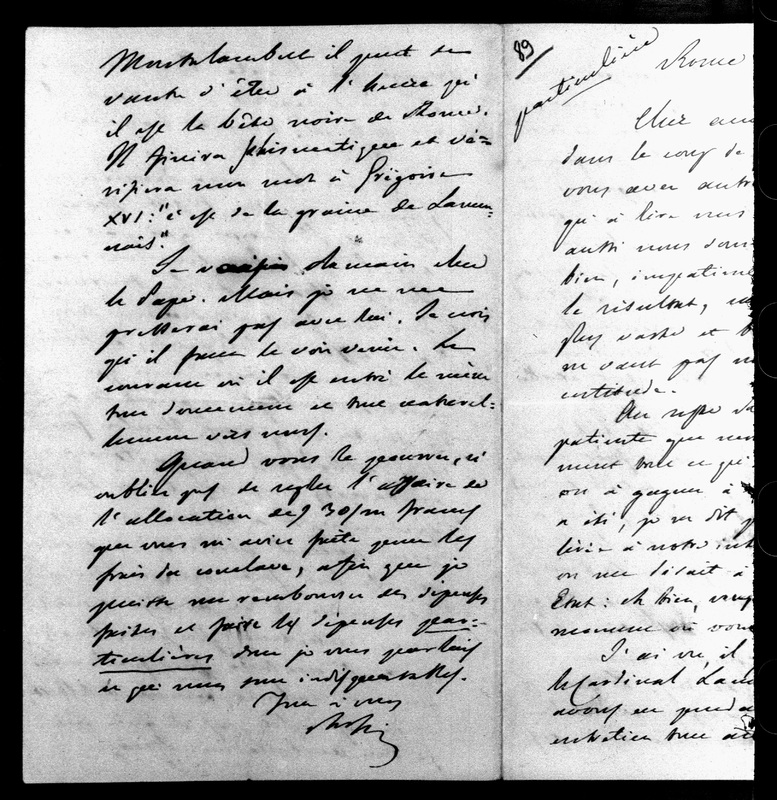 Montalembert il peut se
vanter d'être à l'heure qu'
il est la bête noire de Rome.
Il finira schismatique et vé=
rifiera mon mot à Grégoire
XVI: "c'est de la graine de Lamen=
nais."
Je verrai demain chez
le Pape. Mais je ne me
presserai pas avec lui. Je crois
qu'il faut le voir venir. Le
courant où il est entré le mène
tout doucement et tout naturel=
lement vers nous.
Quand vous le pourrez, n'
oubliez pas de régler l'affaire de
l'allocation des 30/m francs
que vous m'aviez prêté pour les
frais du conclave, afin que je
puisse me rembourser des dépenses
faites et faire les dépenses par=
ticulières dont je vous parlais
et qui nous sont indispensables.
Tout à vous
Rossi
89
particulière
Rome
Cher am
dans le coup de
vous avez autre
qui à lire vous
aussi nous
bien,
le résultat,
plus vaste et
ne vaut pas
certitude.
Au reste
patiente que
ment tout ce qui
on a gagner à
a été, je
à notre
on me disait à
Etat: eh bien,
moment où vous
J'ai vu, il
le Cardinal Lam
avons eu
entretien tout